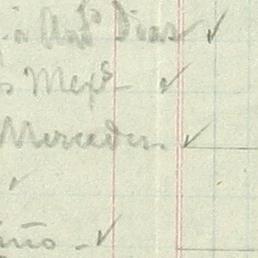 a Anto Dias ✓
s Mexs ✓
Mercedes. ✓
✓
ino - ✓